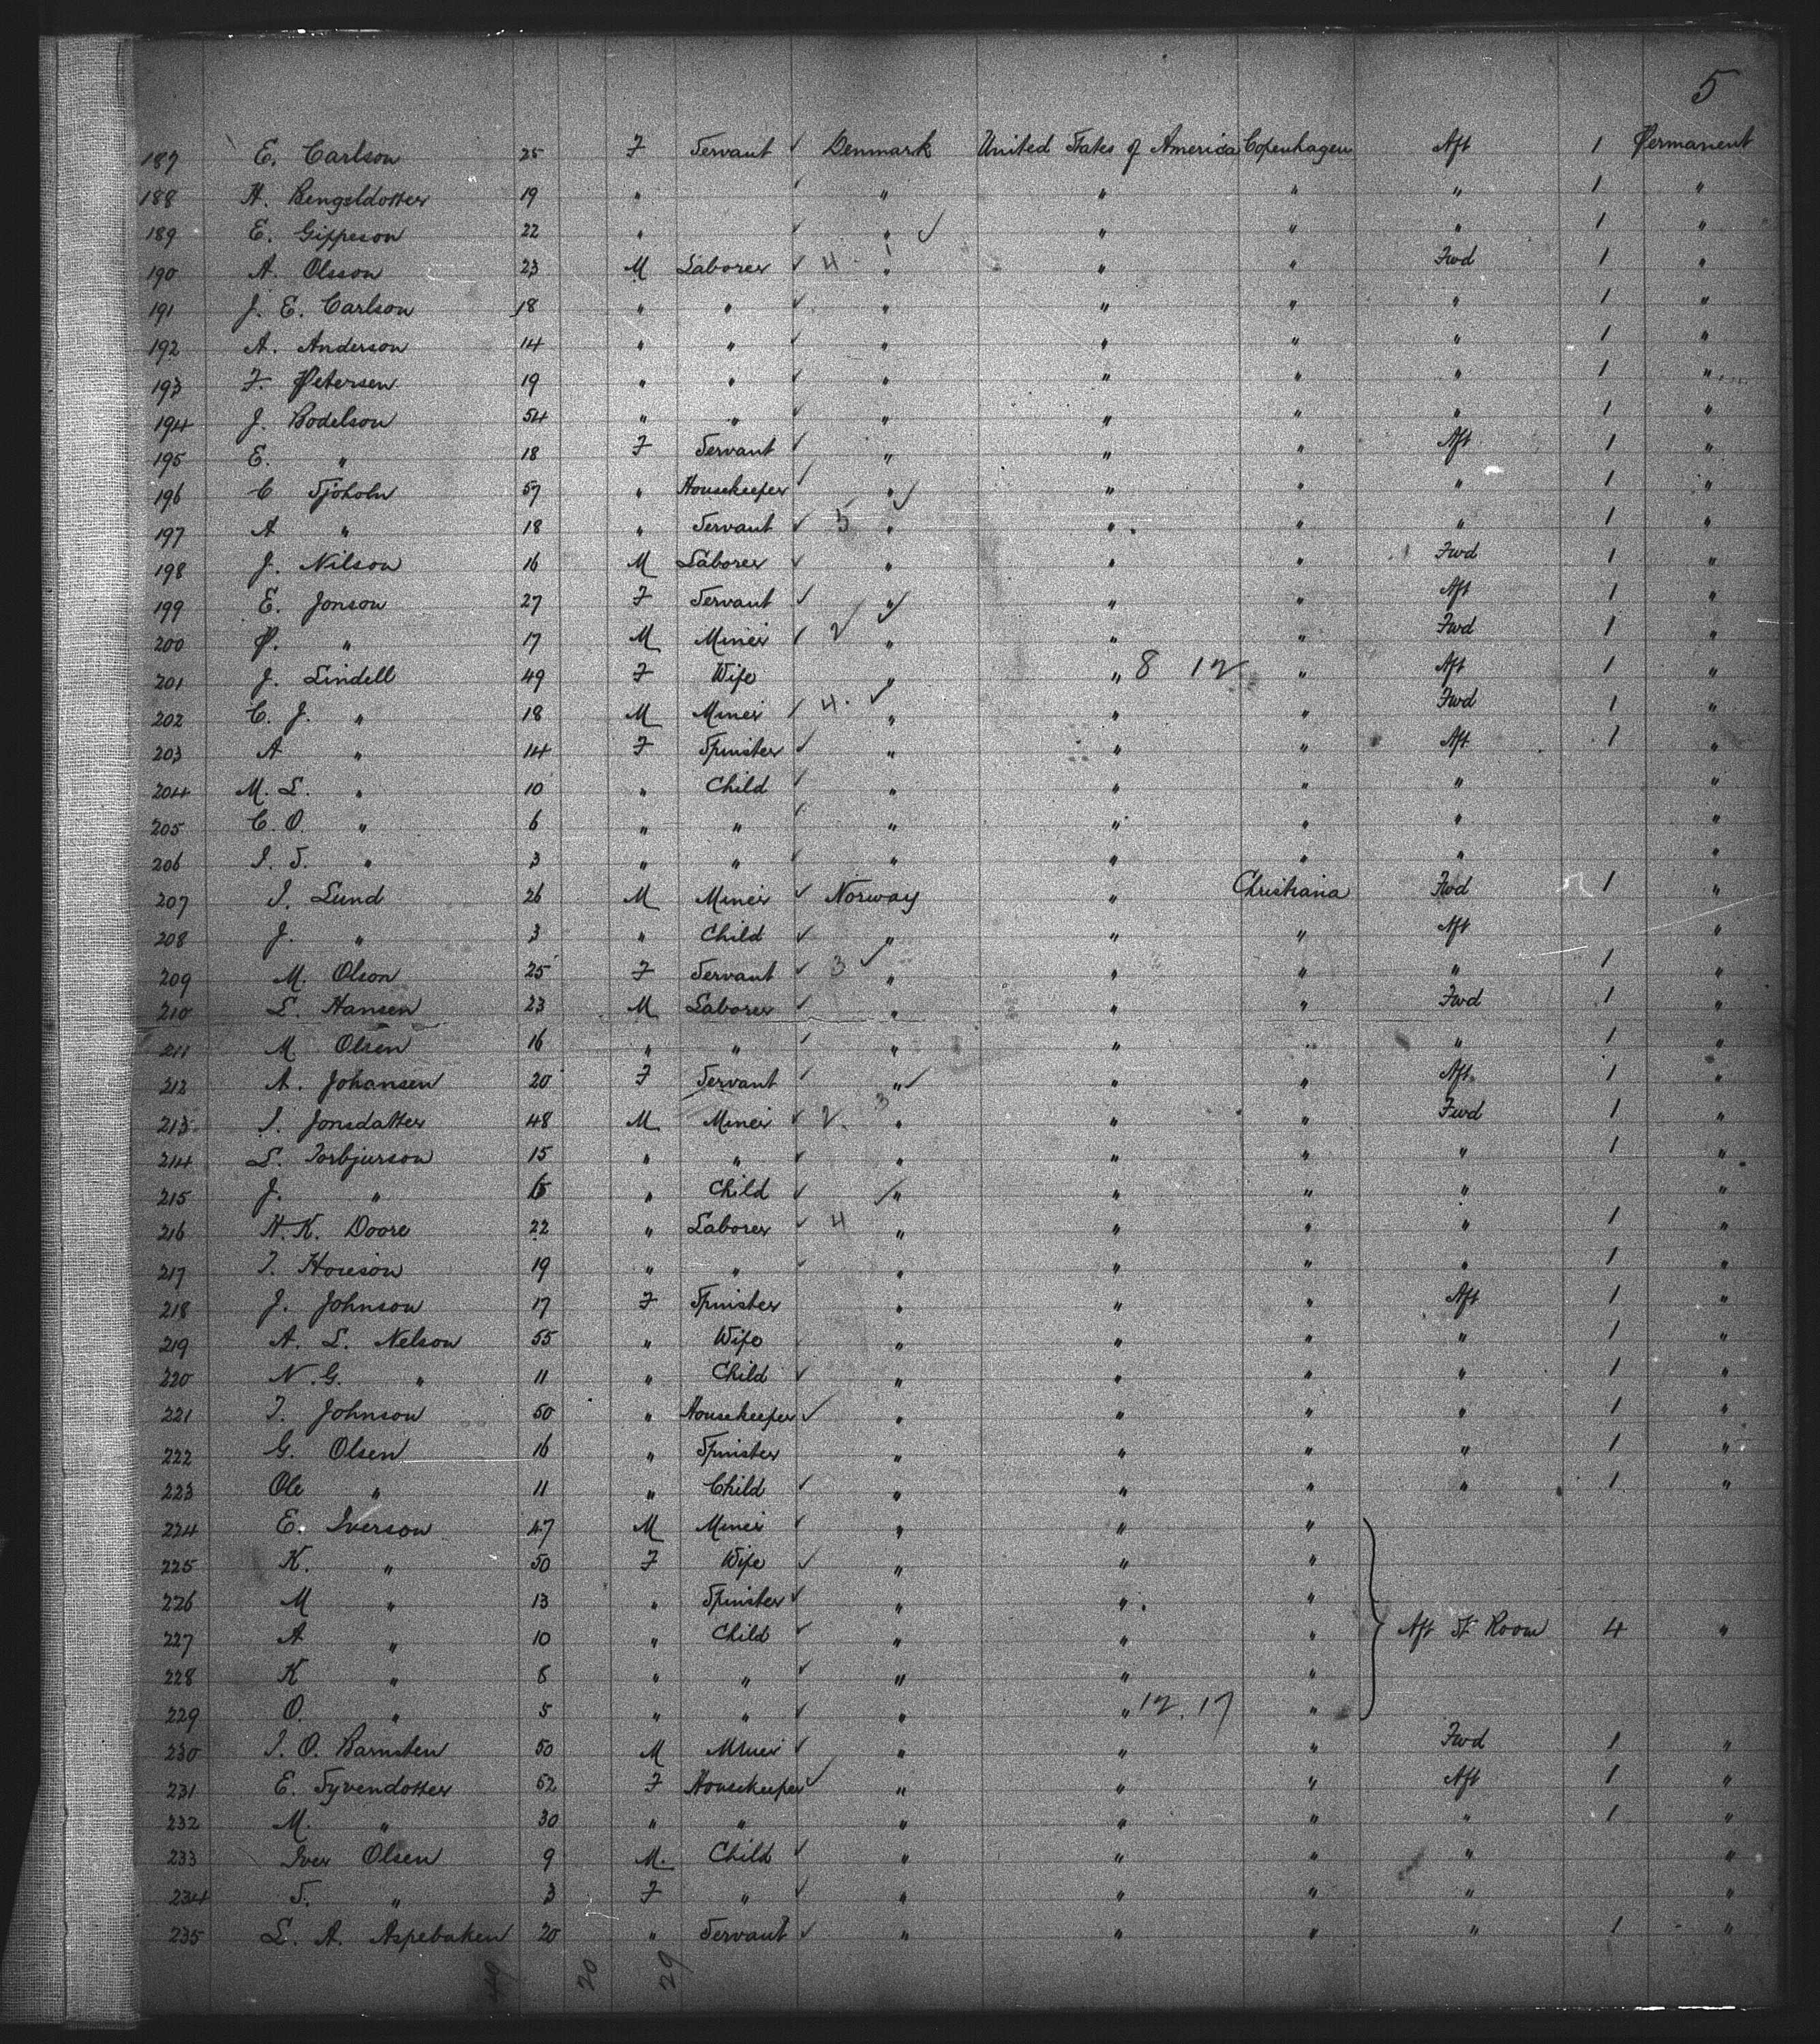 5
187 E. Carlson 25 F Servant ✓ Denmark United States of America Copenhagen Aft 1 Permanent
188 A. Bengaldotter 19 " ✓ " " " " 1 "
189 E. Gippeson 22 " ✓ " ✓ " " " 1 "
190 A. Olsson 23 M Laborer ✓ 4 " " " Fwd 1 "
191 J. E. Carlson 18 " " ✓ " " " " 1 "
192 A. Anderson 14 " " ✓ " " " " 1 "
193 F. Petersen 19 " " ✓ " " " " 1 "
194 J. Bodelson 54 " " ✓ " " " " 1 "
195 E. " 18 F Servant ✓ " " " Aft 1 "
196 C Sjöholm 57 " Housekeeper ✓ " ✓ " " " 1 "
197 A " 18 " Servant ✓ 5 " " " " 1 "
198 J. Nilson 16 M Laborer ✓ " " " Fwd 1 "
199 E. Jonson 27 F Servant ✓ " ✓ " " Aft 1 "
200 P. " 17 M Miner ✓ 2 ✓ " " " Fwd 1 "
201 J. Lindell 49 F Wife " " 8 12 " Aft 1 "
202 C. J. " 18 M Miner ✓ 4. ✓ " " " Fwd 1 "
203 A " 14 F Spinster ✓ " " " Aft 1 "
204 M. L. " 10 " Child ✓ " " " " "
205 C. O. " 6 " " ✓ " " " " "
206 I. S. " 3 " " ✓ " " " " "
207 I. Lund 26 M Miner ✓ Norway " Christiania Fwd 1 "
208 J. " 3 " Child ✓ " " " Aft "
209 M. Olson 25 F Servant ✓ 3 ✓ " " " " 1 "
210 L. Hansen 23 M Laborer ✓ " " " Fwd 1 "
211 M Olsen 16 " " ✓ " " " " 1 "
212 A. Johansen 20 F Servant ✓ " ✓ " " Aft 1 "
213 I. Jonsdatter 48 M Miner ✓ 2. 3 " " " Fwd 1 "
214 L. Torbjurson 15 " " ✓ " " " " 1 "
215 J. " " Child ✓ " ✓ " " " "
216 H. K. Doore 22 " Laborer ✓ 4 " " " " 1 "
217 T. Horeson 19 " " ✓ " " " " 1 "
218 J. Johnson 17 F Spinster " " " Aft 1 "
219 A. L. Nelson 55 " Wife " " " " 1 "
220 N. G. " 11 " Child ✓ " " " " 1 "
221 T. Johnson 50 " Housekeeper ✓ " " " " 1 "
222 G. Olsen 16 " Spinster " " " " 1 "
223 Ole " 11 " Child ✓ " " " " 1 "
224 E. Iverson 47 M Miner ✓ " " "
225 K. " 50 F Wife ✓ " " "
226 M " 13 " Spinster ✓ " " "
227 A " 10 " Child ✓ " " " Aft St Room 4 "
228 K " 8 " " ✓ " " "
229 O. " 5 " " ✓ " " 12.17 "
230 I. O. Barnsten 50 M Miner ✓ " " " Fwd 1 "
231 E. Syvendotter 52 F Housekeeper ✓ " " " Aft 1 "
232 M. " 30 " " " " " " 1 "
233 Iver Olsen 9 M. Child ✓ " " " " "
234 S. " 3 F " ✓ " " " " "
235 L. A. Aspebaken 20 " Servant ✓ " " " " 1 "
49 20 29